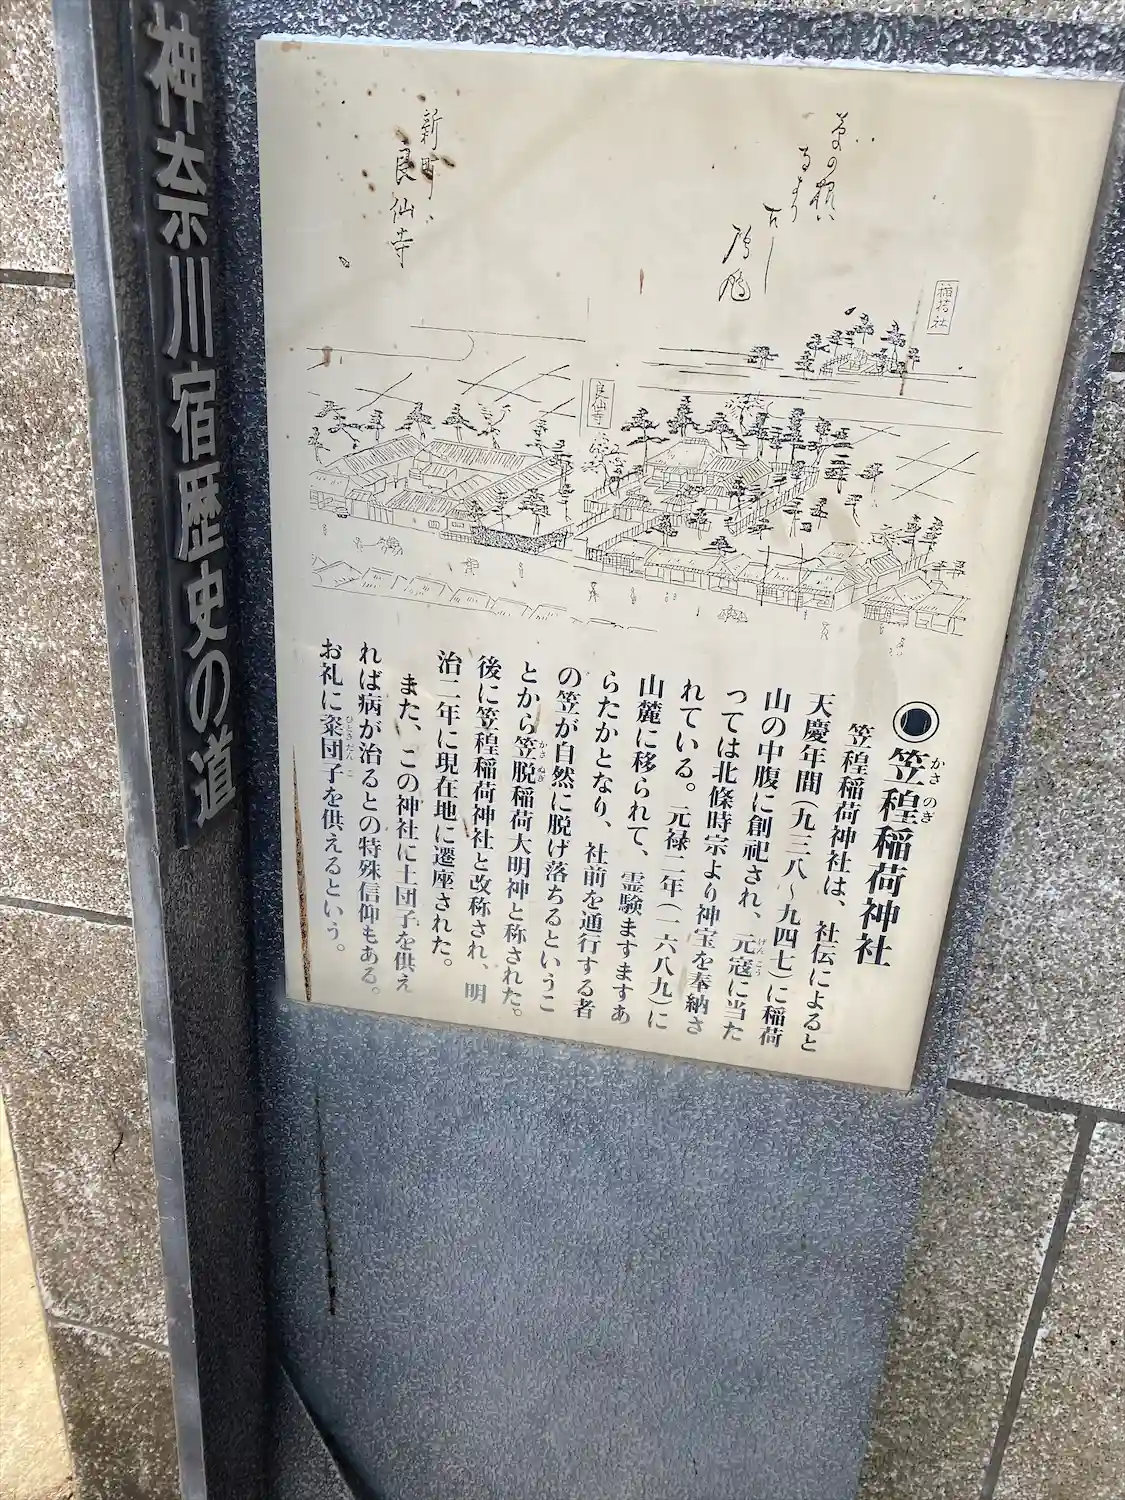 神奈川宿歴史の道
新町
良仙寺
稲荷社
良仙寺
笠䅣稲荷神社
かさ のぎ
笠䅣稲荷神社は、社伝によると
天慶年間(九三八〜九四七)に稲荷
山の中腹に創祀され、元寇に当た
げんこう
っては北條時宗より神宝を奉納さ
れている。元禄二年(一六八九)に
山麓に移られて、霊験ますますあ
らたかとなり、社前を通行する者
の笠が自然に脱げ落ちるというこ
とから笠脱稲荷大明神と称された。
かさ ぬぎ
後に笠䅣稲荷神社と改称され、明
治二年に現在地に遷座された。
また、この神社に土団子を供え
れば病が治るとの特殊信仰もある。
お礼に粢団子を供えるという。